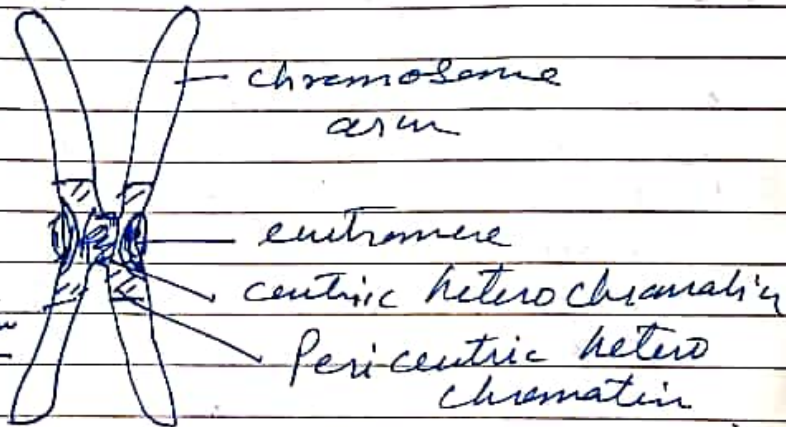 chromosome
arm
centromere
centric heterochromatin
Pericentric hetero
chromatin